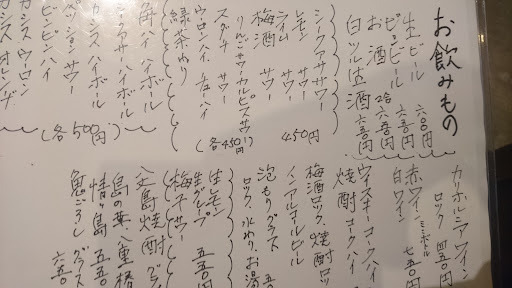 お飲みもの
生ビール 六〇〇円
ビンビール 六五〇円
お酒 2合 六五〇円
白ツル生酒 六五〇円
シークヮサーサワー
レモン サワー
ライム サワー 450円
梅酒 サワー
りんごサワー カルピスサワー
スダチ サワー (各450円)
ウーロンハイ チューハイ
緑茶わり
角ハイ ハイボール
シークヮサーハイボール
カシスハイボール
パッションサワー (各500円)
ビンビン ハイ
カシスウーロン
カシスオレンヂ
カリホルニアワイン
ロック 四五〇円
赤ワイン
白ワイン 七五〇円
ウイスキーコークハイ
焼酎コークハイ
梅酒ロック、焼酎ロッ
ノンアルコールビール
泡もりグラス
ロック、水わり、お湯
生レモン
生グレープ 五五〇円
梅干サワー
八丈島焼酎
島の華、八重椿
情ヶ島 五五
鬼ごろし グラス
六五〇